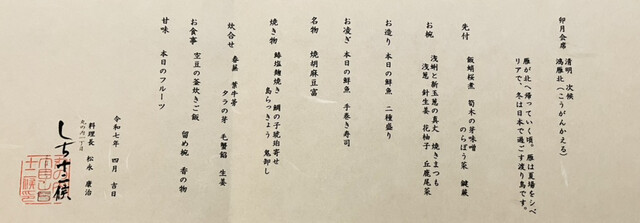 卯月会席
清明 次候
鴻雁北(こうがんかえる)
雁が北へ帰っていく頃。雁は夏場をシベ
リアで、冬は日本で過ごす渡り鳥です。
先付 飯蛸桜煮 筍木の芽味噌 鍵蕨
のらぼう菜
お椀 浅蜊と新玉葱の真丈 焼きまつも
浅葱 針生姜 花柚子 丘鹿尾菜
お造り 本日の鮮魚 二種盛り
お凌ぎ 本日の鮮魚 手巻き寿司
名物 焼胡麻豆富
焼き物 鰆塩麹焼き 鯛の子琥珀寄せ
島らっきょう 鬼卸し
炊合せ 春蕪 葉牛蒡
タラの芽 毛蟹餡 生姜
お食事 空豆の釜炊きご飯
留め椀 香の物
甘味 本日のフルーツ
令和七年 四月 吉日
料理長 松永 康治
丸の内一丁目
しち十二候